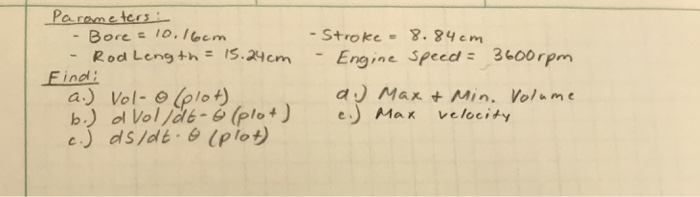 Parameters:
- Bore = 10.16cm - Stroke = 8.84cm
- Rod Length = 15.24cm - Engine Speed = 3600rpm
Find:
a.) Vol-θ (plot) d.) Max + Min. Volume
b.) d Vol/dt-θ (plot) e.) Max velocity
c.) ds/dt-θ (plot)